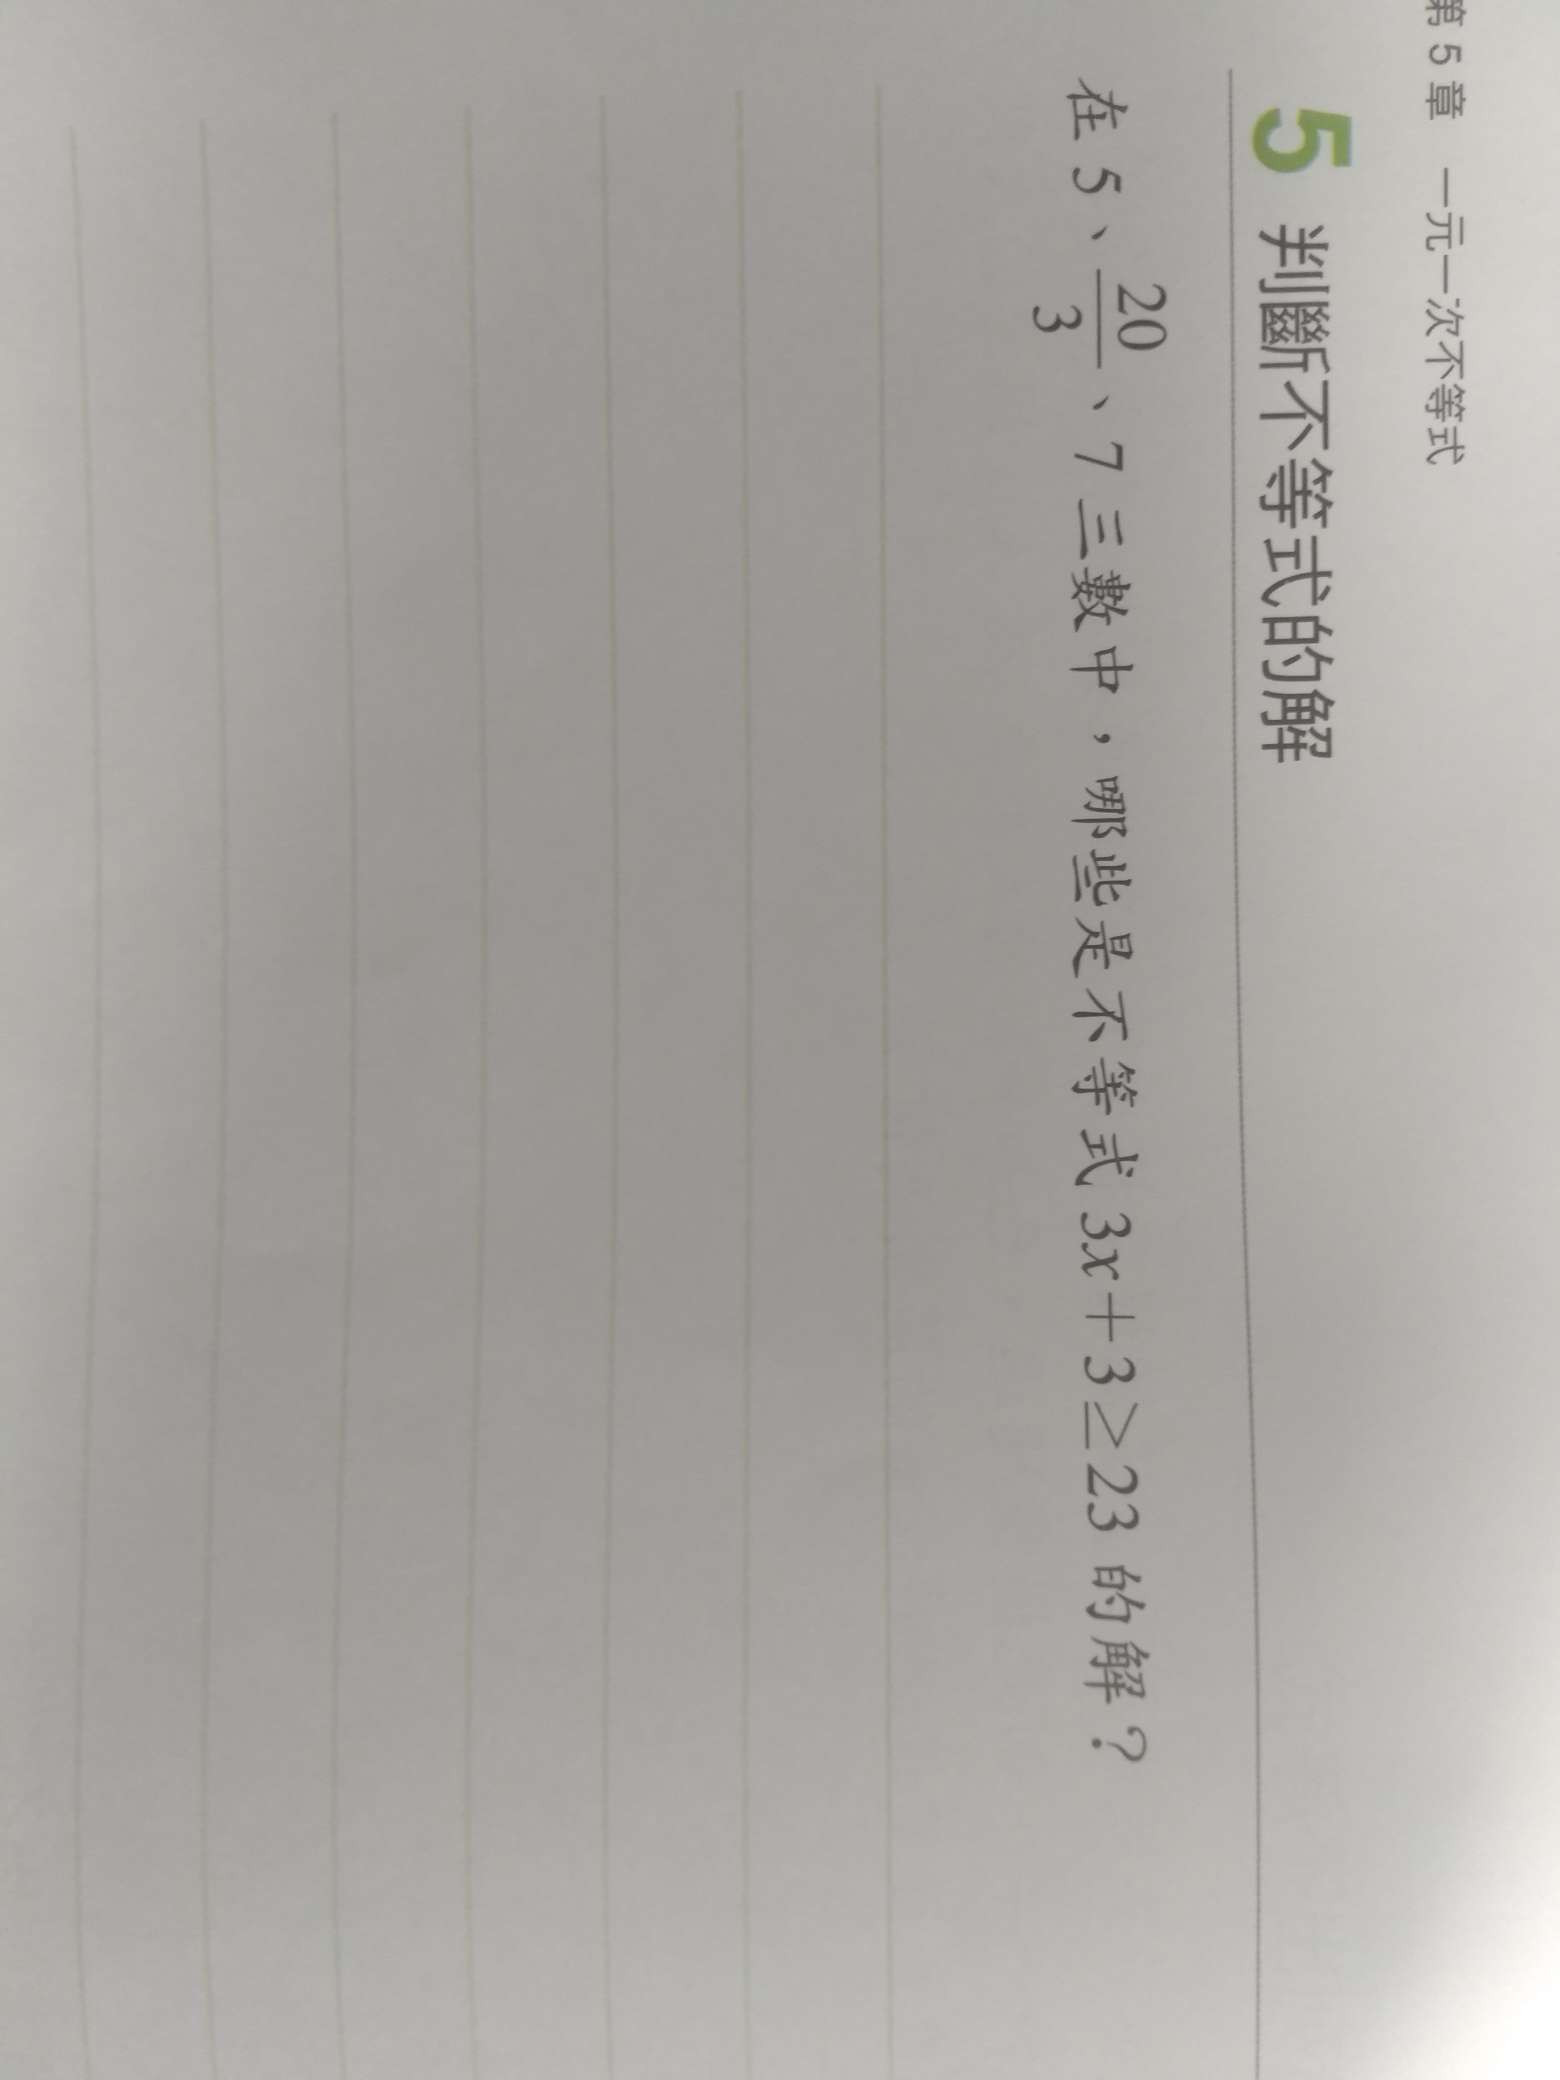 第 5 章 一元一次不等式
5 判斷不等式的解
在 5、20/3、7 三數中，哪些是不等式 3x＋3≥23 的解？